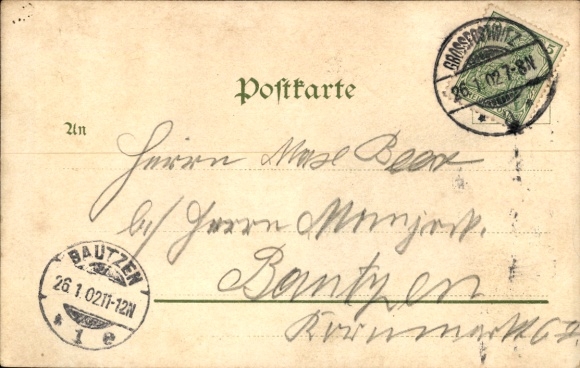 GROSSPOSTWITZ
26.1.02.7-8N
5
Postkarte
An
Herrn Max Beer
b/ Herrn
Bautzen
Kornmarkt
BAUTZEN
26.1.02.11-12N
* 1 e